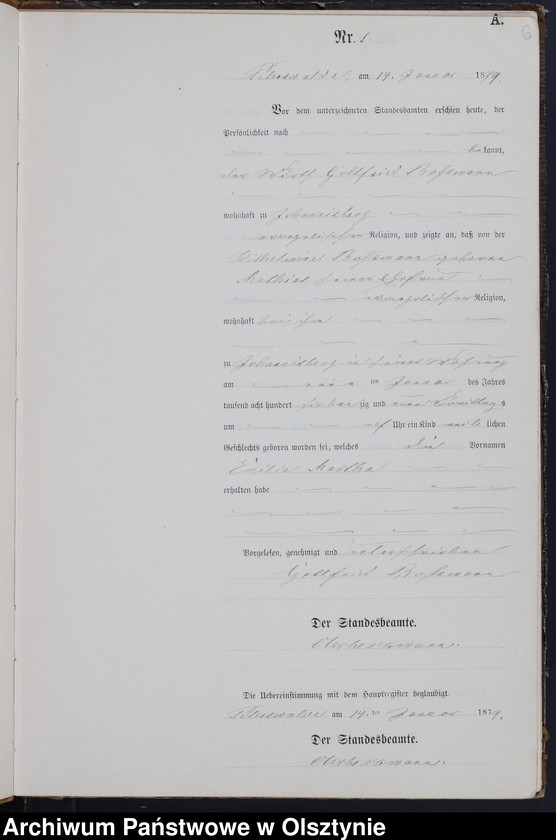 A.
6
Nr. 1.
am 14. Januar 1879.
Vor dem unterzeichneten Standesbeamten erschien heute, der
Persönlichkeit nach
bekannt,
der Wirth Gottfried
wohnhaft zu Johannisberg
evangelischer Religion, und zeigte an, daß von der
Wilhelmine geborene
seiner Ehefrau
evangelischer Religion,
wohnhaft bei ihm
zu Johannisberg in seiner Wohnung
am Januar des Jahres
tausend acht hundert siebenzig und neun Vormittags
um Uhr ein Kind weiblichen
Geschlechts geboren worden sei, welches die Vornamen
Martha
erhalten habe
Vorgelesen, genehmigt und unterschrieben
Gottfried
Der Standesbeamte.
Die Uebereinstimmung mit dem Hauptregister beglaubigt.
am 14. ten Januar 1879.
Der Standesbeamte.
Archiwum Państwowe w Olsztynie